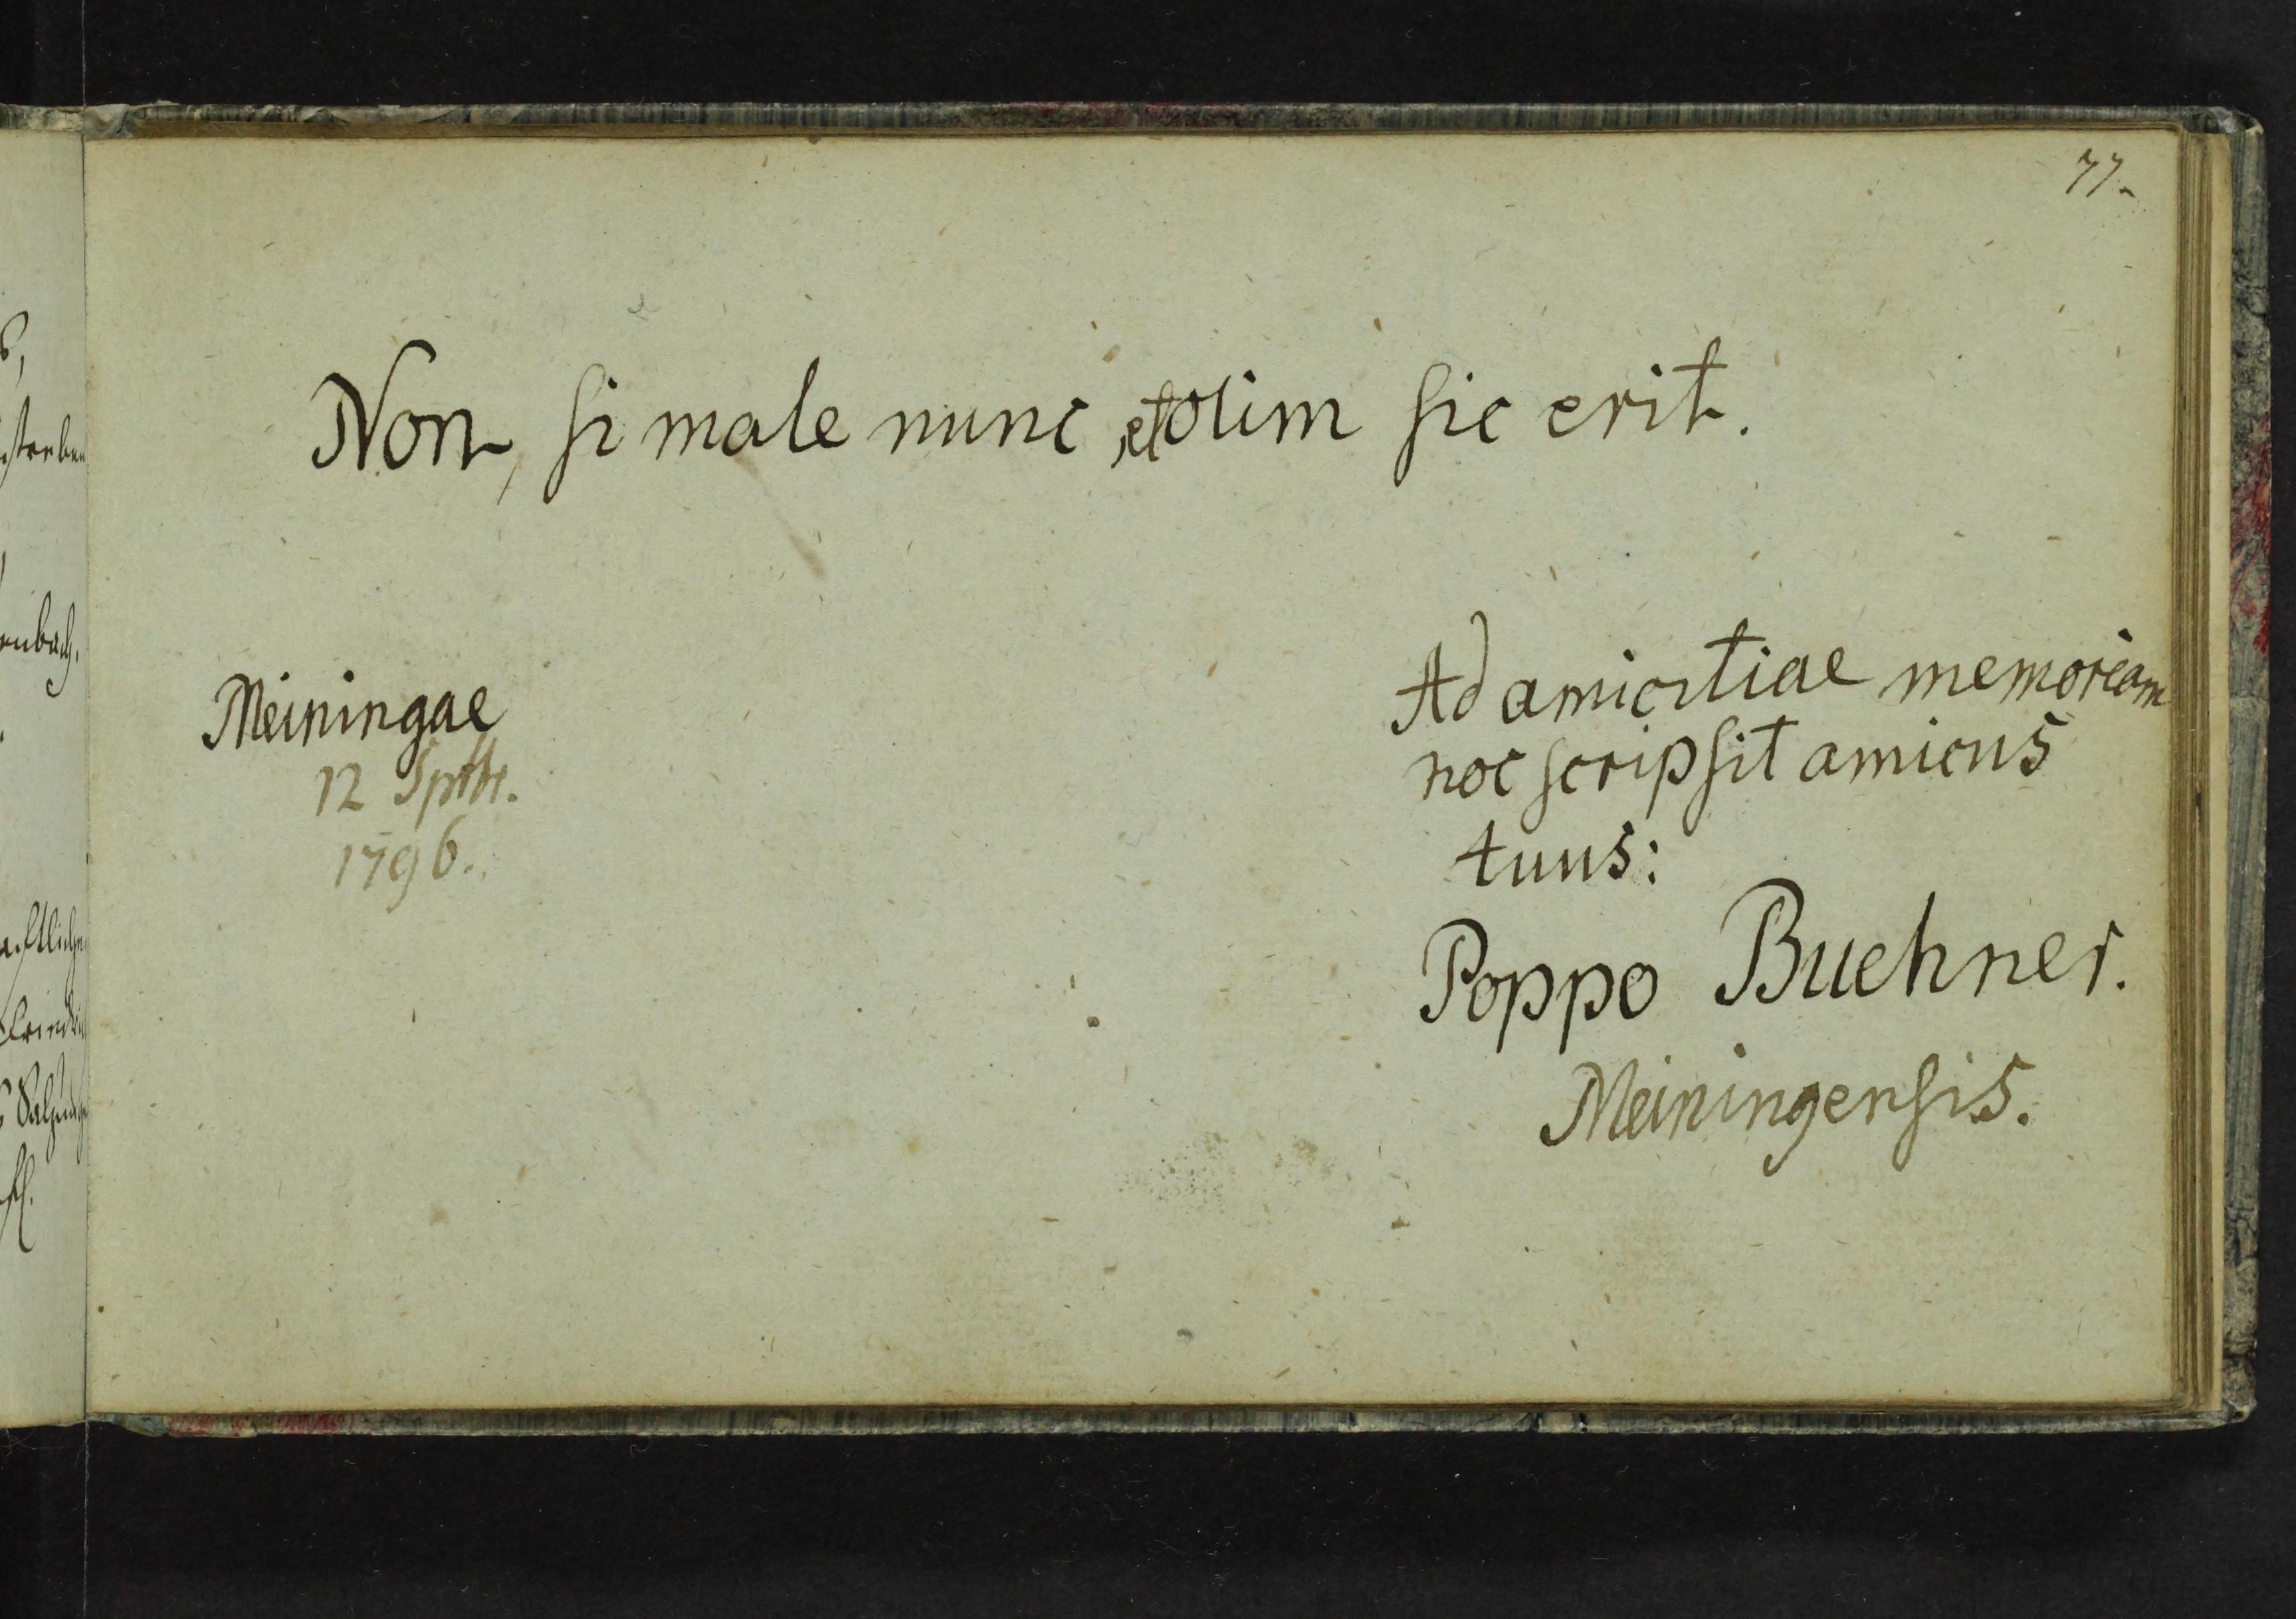 77.
Non, si male nunc, et olim sic erit.
Meiningae
12 Sptbr.
1796.
Ad amicitiae memoriam
hoc scripsit amicus
tuus:
Poppo Buchner.
Meiningensis.